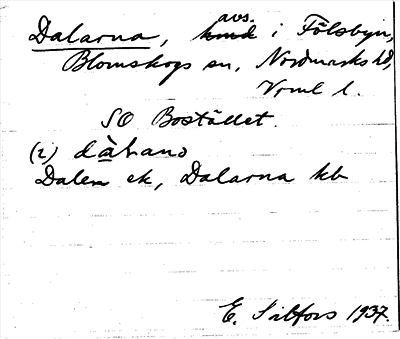 Dalarna, avs. i Fölsbyn,
Blomskogs sn, Nordmarks hd,
Vrml l.
SO Bostället.
(i) dàɫana
Dalen ek, Dalarna kb
E. Salfors 1937.